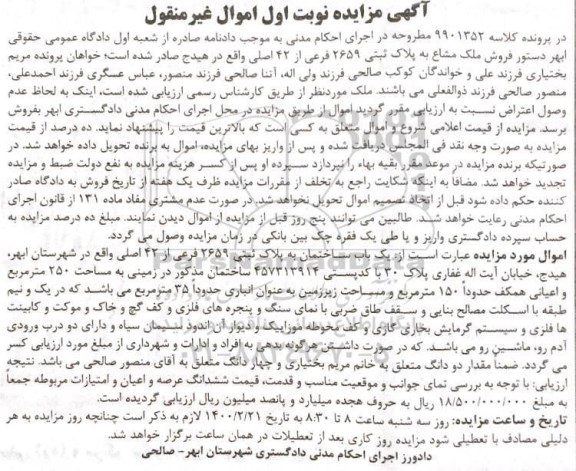 آگهی مزایده نوبت اول اموال غیرمنقول
در پرونده کلاسه ۹۹۰۱۳۵۲ مطروحه در اجرای احکام مدنی به موجب دادنامه صادره از شعبه اول دادگاه عمومی حقوقی
ابهر دستور فروش ملک مشاع به پلاک ثبتی ۲۶۵۹ فرعی از ۴۲ اصلی واقع در هیدج صادر شده است؛ خواهان پرونده مریم
بختیاری فرزند علی و خواندگان کوکب صالحی فرزند ولی اله، آتنا صالحی فرزند منصور، عباس عسگری فرزند احمدعلی،
منصور صالحی فرزند ذوالفعلی می باشند. ملک موردنظر از طریق کارشناس رسمی ارزیابی شده است، اینک به لحاظ عدم
وصول اعتراض نسبت به ارزیابی مقرر گردید اموال از طریق مزایده در محل اجرای احکام مدنی دادگستری ابهر بفروش
برسد. مزایده از قیمت اعلامی شروع و اموال متعلق به کسی است که بالاترین قیمت را پیشنهاد نماید. ده درصد از قیمت
مزایده به صورت وجه نقد فی المجلس دریافت شده و پس از واریز بهای مزایده، اموال به برنده تحویل داده خواهد شد. در
صورتیکه برنده مزایده در موعد مقرر بقیه بهاء را نپردازد سپرده او پس از کسر هزینه مزایده به نفع دولت ضبط و مزایده
تجدید خواهد شد. مضافاً به اینکه شکایت راجع به تخلف از مقررات مزایده ظرف یک هفته از تاریخ فروش به دادگاه صادر
کننده حکم داده شود قبل از اتخاذ تصمیم اموال تحویل نخواهد شد. در صورت عدم مشتری مفاد ماده ۱۳۱ از قانون اجرای
احکام مدنی رعایت خواهد شد. طالبین می توانند پنج روز قبل از مزایده از اموال دیدن نمایند. مبلغ ده درصد مزایده به
حساب سپرده دادگستری واریز و یا طی یک فقره چک بین بانکی در زمان مزایده وصول می گردد.
اموال مورد مزایده عبارت است از یک باب ساختمان به پلاک ثبتی ۲۶۵۹ فرعی از ۴۲ اصلی واقع در شهرستان ابهر،
هیدج، خیابان آیت اله غفاری پلاک ۳۰ با کدپستی ۴۵۷۳۱۳۹۱۴ ساختمان مذکور در زمینی به مساحت ۲۵۰ مترمربع
و اعیانی همکف حدوداً ۱۵۰ مترمربع و مساحت زیرزمین به عنوان انباری حدودا ۳۵ مترمربع می باشد که در یک و نیم
طبقه با اسکلت مصالح بنایی و سقف طاق ضربی با نمای سنگ و پنجره های فلزی و کف گچ و خاک و موکت و کابینت
ها فلزی و سیستم گرمایش بخاری گازی و کف محوطه موزاییک و دیوار آن اندود سیمان سیاه و دارای دو درب ورودی
آدم رو، ماشین رو می باشند. که در صورت داشتن هرگونه بدهی به افراد و ادارات و شهرداری از مبلغ مورد ارزیابی کسر
می گردد. ضمناً مقدار دو دانگ متعلق به خانم مریم بختیاری و چهار دانگ متعلق به آقای منصور صالحی می باشد. نتیجه
ارزیابی: با توجه به بررسی تمای جوانب و موقعیت مناسب و قدمت، قیمت ششدانگ عرصه و اعیان و امتیازات مربوطه جمعاً
به مبلغ ۱۸/۵۰۰/۰۰۰/۰۰۰ ریال به حروف هجده میلیارد و پانصد میلیون ریال ارزیابی گردیده است.
تاریخ و ساعت مزایده: روز سه شنبه ساعت ۸ تا ۸:۳۰ به تاریخ ۱۴۰۰/۲/۲۱ لازم به ذکر است چنانچه روز مزایده به هر
دلیلی مصادف با تعطیلی شود مزایده روز کاری بعد از تعطیلات در همان ساعت برگزار خواهد شد.
دادورز اجرای احکام مدنی دادگستری شهرستان ابهر- صالحی